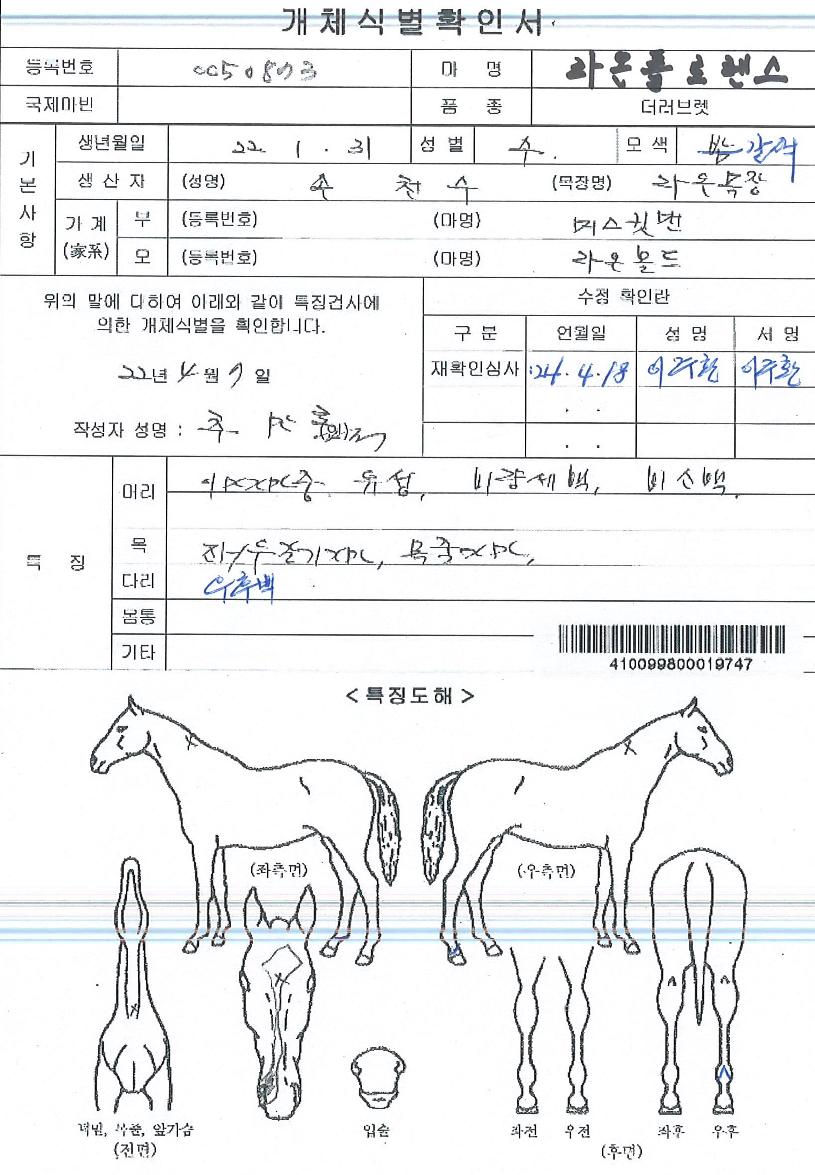 개체식별확인서
등록번호 0050873 마 명 라온플로렌스
국제마빈 품 종 더러브렛
기본사항
생년월일 22. 1. 31 성별 수. 모색 밤 갈색
생산자 (성명) 손 천 수 (목장명) 라온목장
가계(家系) 부 (등록번호) (마명) 머스킷맨
모 (등록번호) (마명) 라온몰드
위의 말에 대하여 아래와 같이 특징검사에
의한 개체식별을 확인합니다.
22년 4월 7일
작성자 성명 : (인)
수정 확인란
구 분 연월일 성 명 서 명
재확인심사 '24. 4. 18 이주환 이주환
특 징
머리 유성, 비량세백, 비소백.
목
다리 우후백
몸통
기타
410099800019747
< 특징도해 >
(좌측면) (우측면)
턱밑, 목쭐, 앞가슴
(전면)
입술
좌전 우전 좌후 우후
(후면)